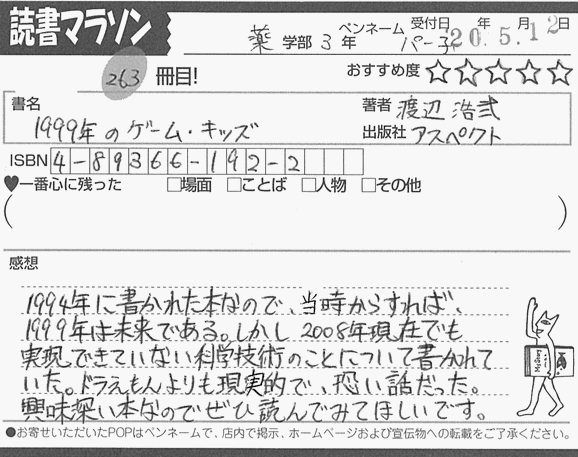 読書マラソン
薬 学部 3 年 ペンネーム パー子 受付日 20年 5.12日
263 冊目! おすすめ度 ☆☆☆☆☆
書名 著者 渡辺 浩弐
1999年のゲーム・キッズ 出版社 アスペクト
ISBN 4-89366-192-2
♥一番心に残った □場面 □ことば □人物 □その他
( )
感想
1994年に書かれた本なので、当時からすれば、
1999年は未来である。しかし 2008年現在でも
実現できていない科学技術のことについて書かれて
いた。ドラえもんよりも現実的で、恐い話だった。
興味深い本なのでぜひ読んでみてほしいです。
●お寄せいただいたPOPはペンネームで、店内で掲示、ホームページおよび宣伝物への転載をご了承ください。